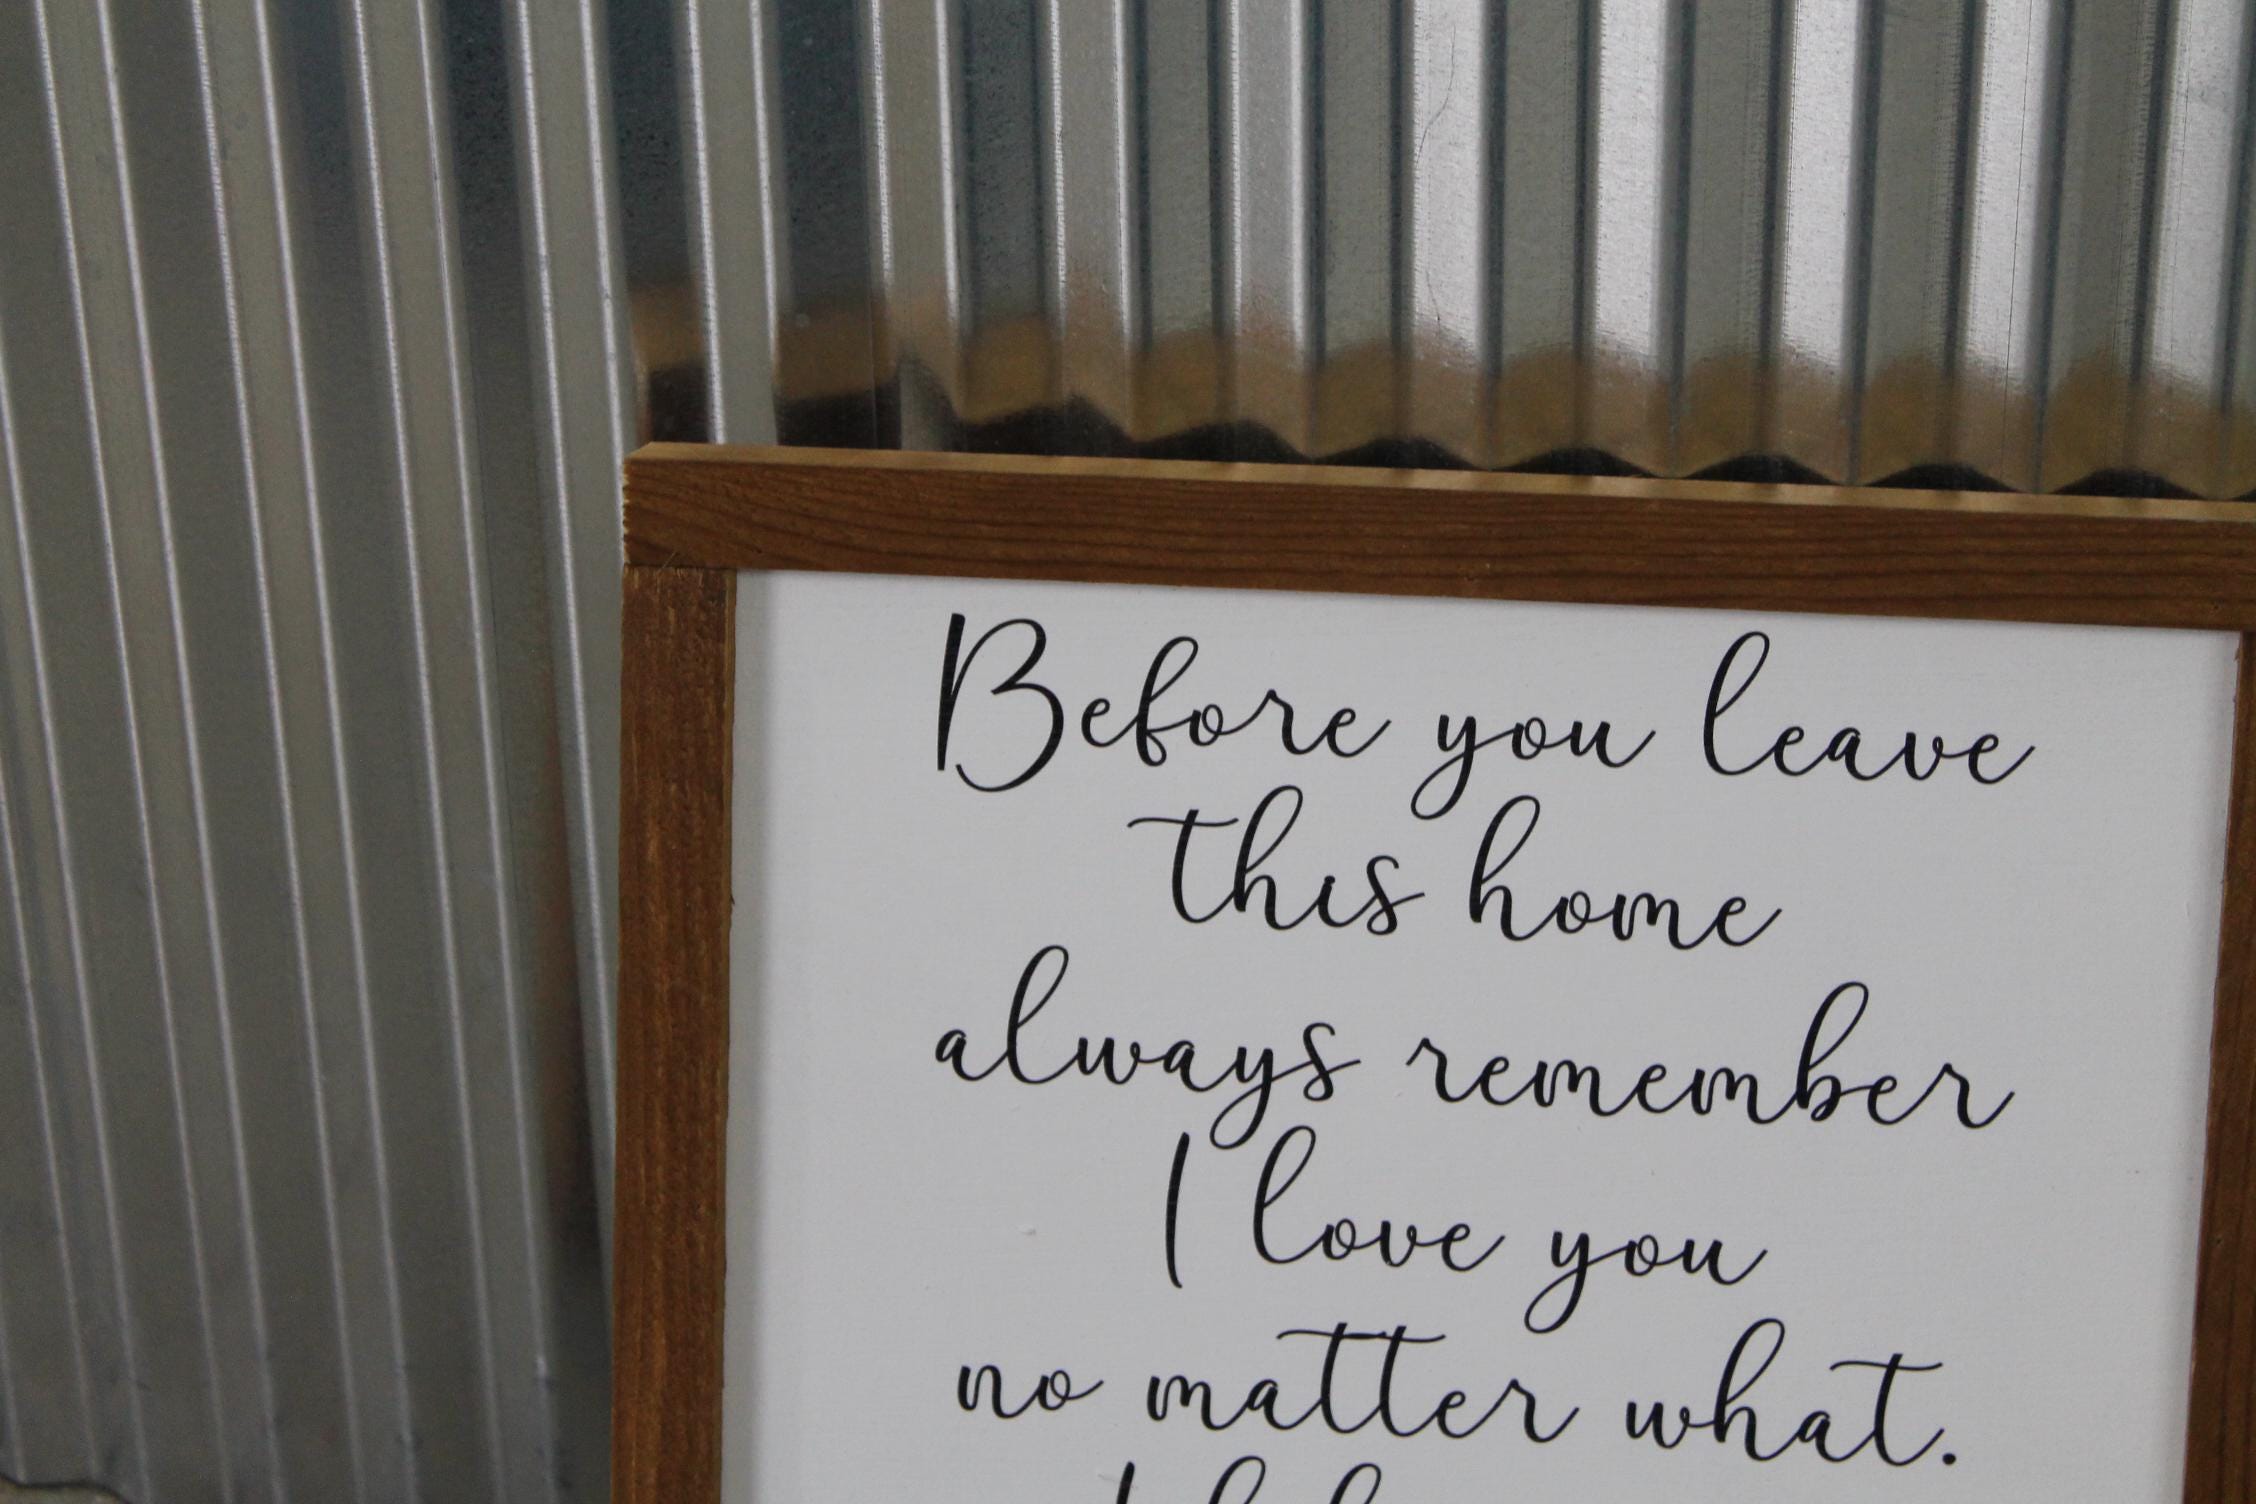 Before you leave
this home
always remember
I love you
no matter what.